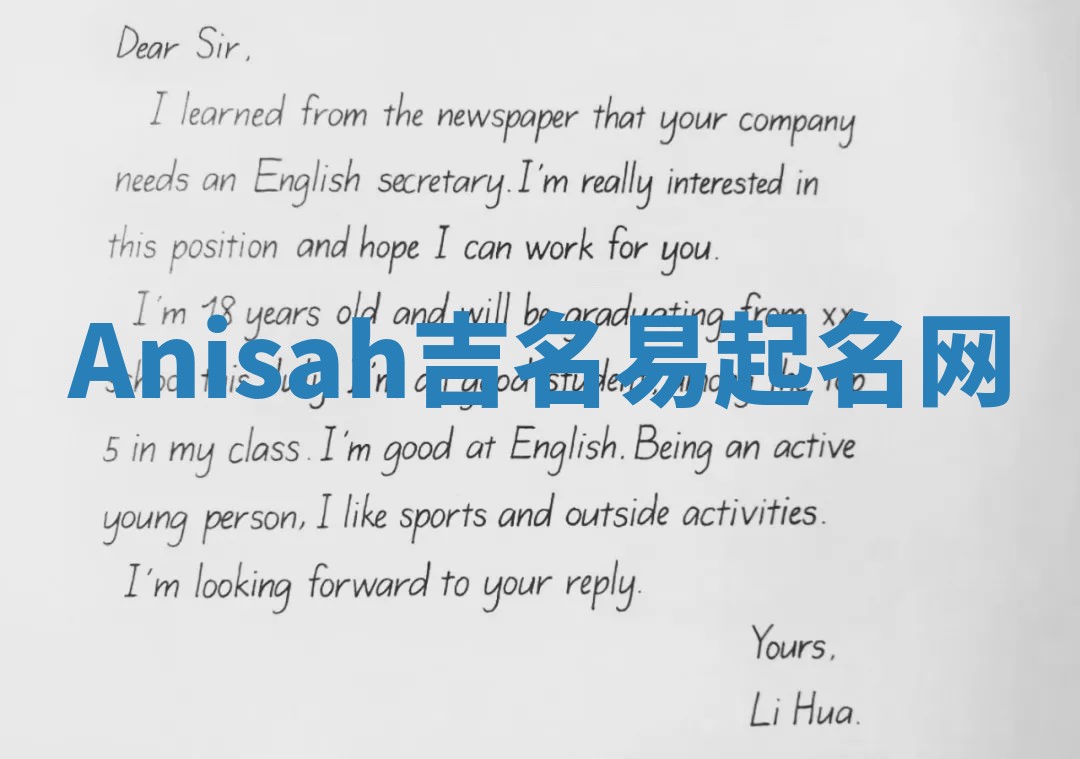 Dear Sir,
I learned from the newspaper that your company
needs an English secretary. I'm really interested in
this position and hope I can work for you.
I'm 18 years old and will be graduating from xx
Anisah吉名易起名网
school this July. I'm a good student, among the top
5 in my class. I'm good at English. Being an active
young person, I like sports and outside activities.
I'm looking forward to your reply.
Yours,
Li Hua.